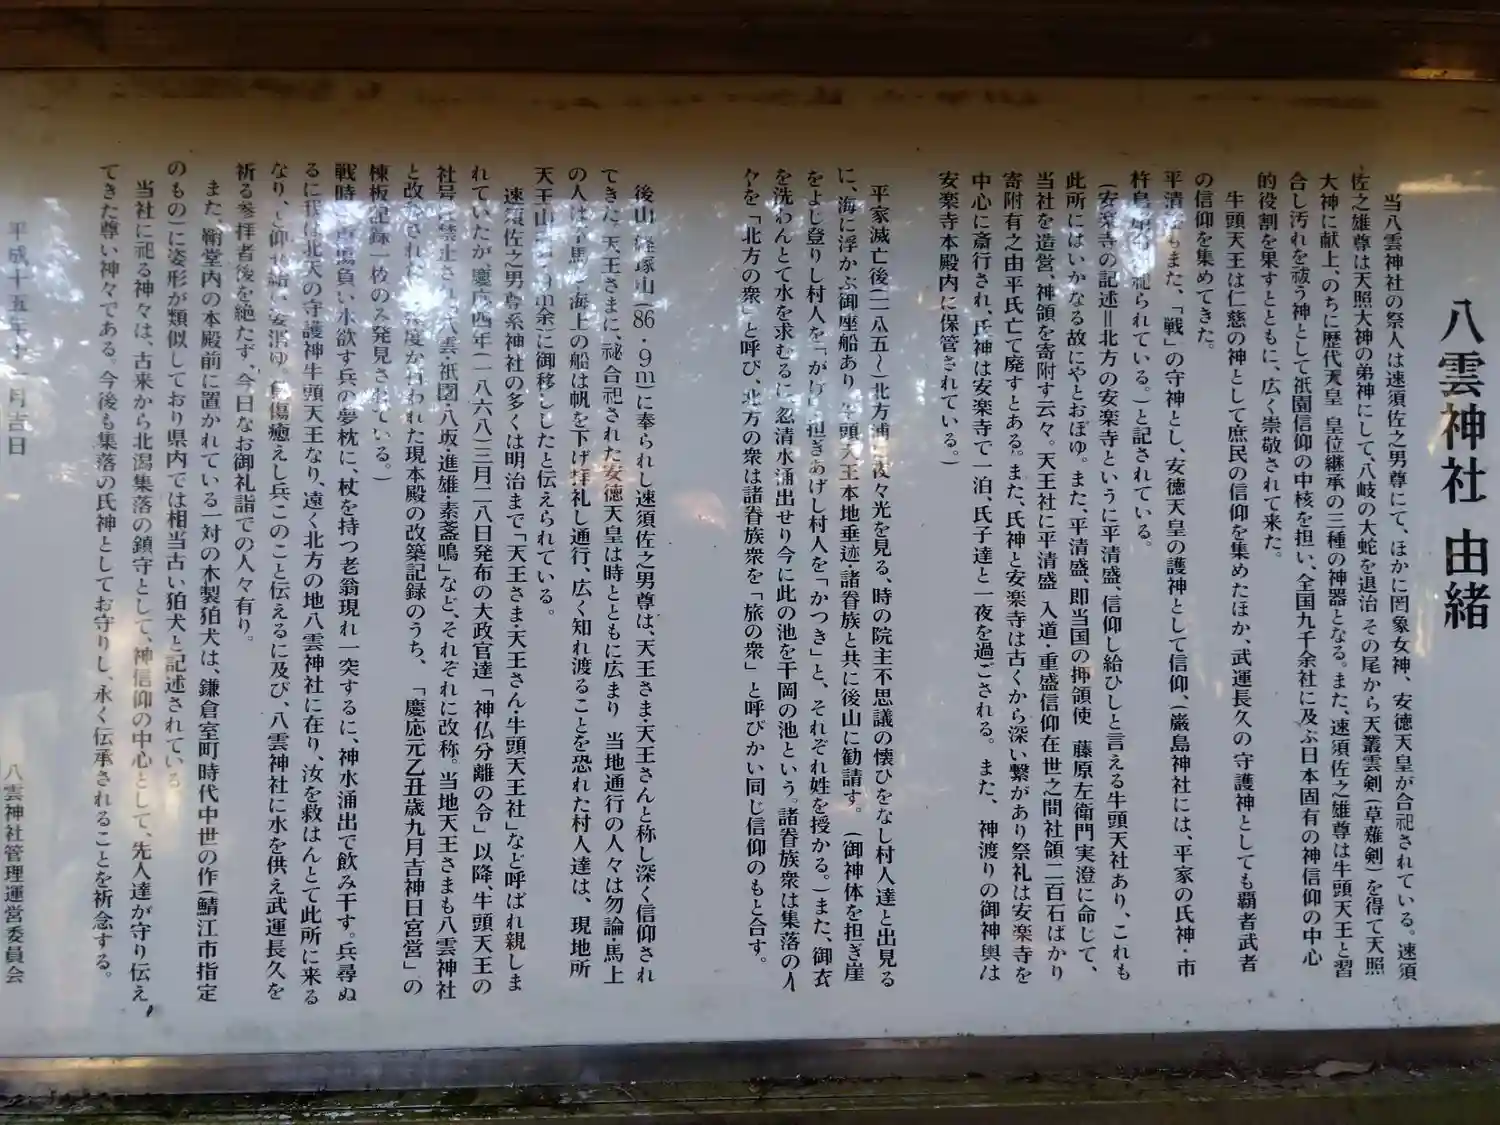 八雲神社 由緒
当八雲神社の祭人は速須佐之男尊にて、ほかに罔象女神、安徳天皇が合祀されている。速須
佐之雄尊は天照大神の弟神にして、八岐の大蛇を退治 その尾から天叢雲剣(草薙剣)を得て天照
大神に献上、のちに歴代天皇 皇位継承の三種の神器となる。また、速須佐之雄尊は牛頭天王と習
合し汚れを祓う神として祇園信仰の中核を担い、全国九千余社に及ぶ日本固有の神信仰の中心
的役割を果すとともに、広く崇敬されて来た。
牛頭天王は仁慈の神として庶民の信仰を集めたほか、武運長久の守護神としても覇者武者
の信仰を集めてきた。
平清 もまた、「戦」の守神とし、安徳天皇の護神として信仰、(厳島神社には、平家の氏神・市
杵島 祀られている。)と記されている。
(安楽寺の記述=北方の安楽寺というに平清盛、信仰し給ひしと言える牛頭天社あり、これも
此所にはいかなる故にやとおぼゆ。また、平清盛、即当国の押領使 藤原左衛門実澄に命じて、
当社を造営、神領を寄附す云々。天王社に平清盛 入道・重盛信仰在世之間社領二百石ばかり
寄附有之由平氏亡て廃すとある。また、氏神と安楽寺は古くから深い繋があり祭礼は安楽寺を
中心に斎行され、氏神は安楽寺で一泊、氏子達と一夜を過ごされる。また、神渡りの御神輿は
安楽寺本殿内に保管されている。)
平家滅亡後(一一八五〜)北方浦に夜々光を見る、時の院主不思議の懐ひをなし村人達と出見る
に、海に浮かぶ御座船あり、牛頭天王本地垂迹・諸眷族と共に後山に勧請す。(御神体を担ぎ崖
をよじ登りし村人を「がけ」、担ぎあげし村人を「かつき」と、それぞれ姓を授かる。)また、御衣
を洗わんとて水を求むるに忽清水涌出せり今に此の池を干岡の池という。諸眷族衆は集落の人
々を「北方の衆」と呼び、北方の衆は諸眷族衆を「旅の衆」と呼びかい同じ信仰のもと合す。
後山 経塚山(86・9m)に奉られし速須佐之男尊は、天王さま・天王さんと称し深く信仰され
てきた。天王さまに、祕合祀された安徳天皇は時とともに広まり 当地通行の人々は勿論・馬上
の人は下馬し、海上の船は帆を下げ拝礼し通行、広く知れ渡ることを恐れた村人達は、現地所
天王山 m余に御移ししたと伝えられている。
速須佐之男尊系神社の多くは明治まで「天王さま・天王さん・牛頭天王社」など呼ばれ親しま
れていたが慶応四年(一八六八)三月二八日発布の大政官達「神仏分離の令」以降、牛頭天王の
社号は禁止され、八雲・祇園・八坂・進雄・素盞嗚」など、それぞれに改称。当地天王さまも八雲神社
と改 された。 度か行われた現本殿の改築記録のうち、「慶応元乙丑歳九月吉神日宮営」の
棟板記録一枚のみ発見されている。)
戦時 負い水欲す兵の夢枕に、杖を持つ老翁現れ一突するに、神水涌出で飲み干す。兵尋ぬ
るに我は北天の守護神牛頭天王なり、遠く北方の地八雲神社に在り、汝を救はんとて此所に来る
なり、と仰せ給い姿消ゆ。負傷癒えし兵このこと伝えるに及び、八雲神社に水を供え武運長久を
祈る参拝者後を絶たず、今日なお御礼詣での人々有り。
また、鞘堂内の本殿前に置かれている一対の木製狛犬は、鎌倉室町時代中世の作(鯖江市指定
のもの)に姿形が類似しており県内では相当古い狛犬と記述されてい
当社に祀る神々は、古来から北潟集落の鎮守として、神信仰の中心として、先人達が守り伝え
てきた尊い神々である。今後も集落の氏神としてお守りし、永く伝承されることを祈念する。
平成十五年十 月吉日
八雲神社管理運営委員会